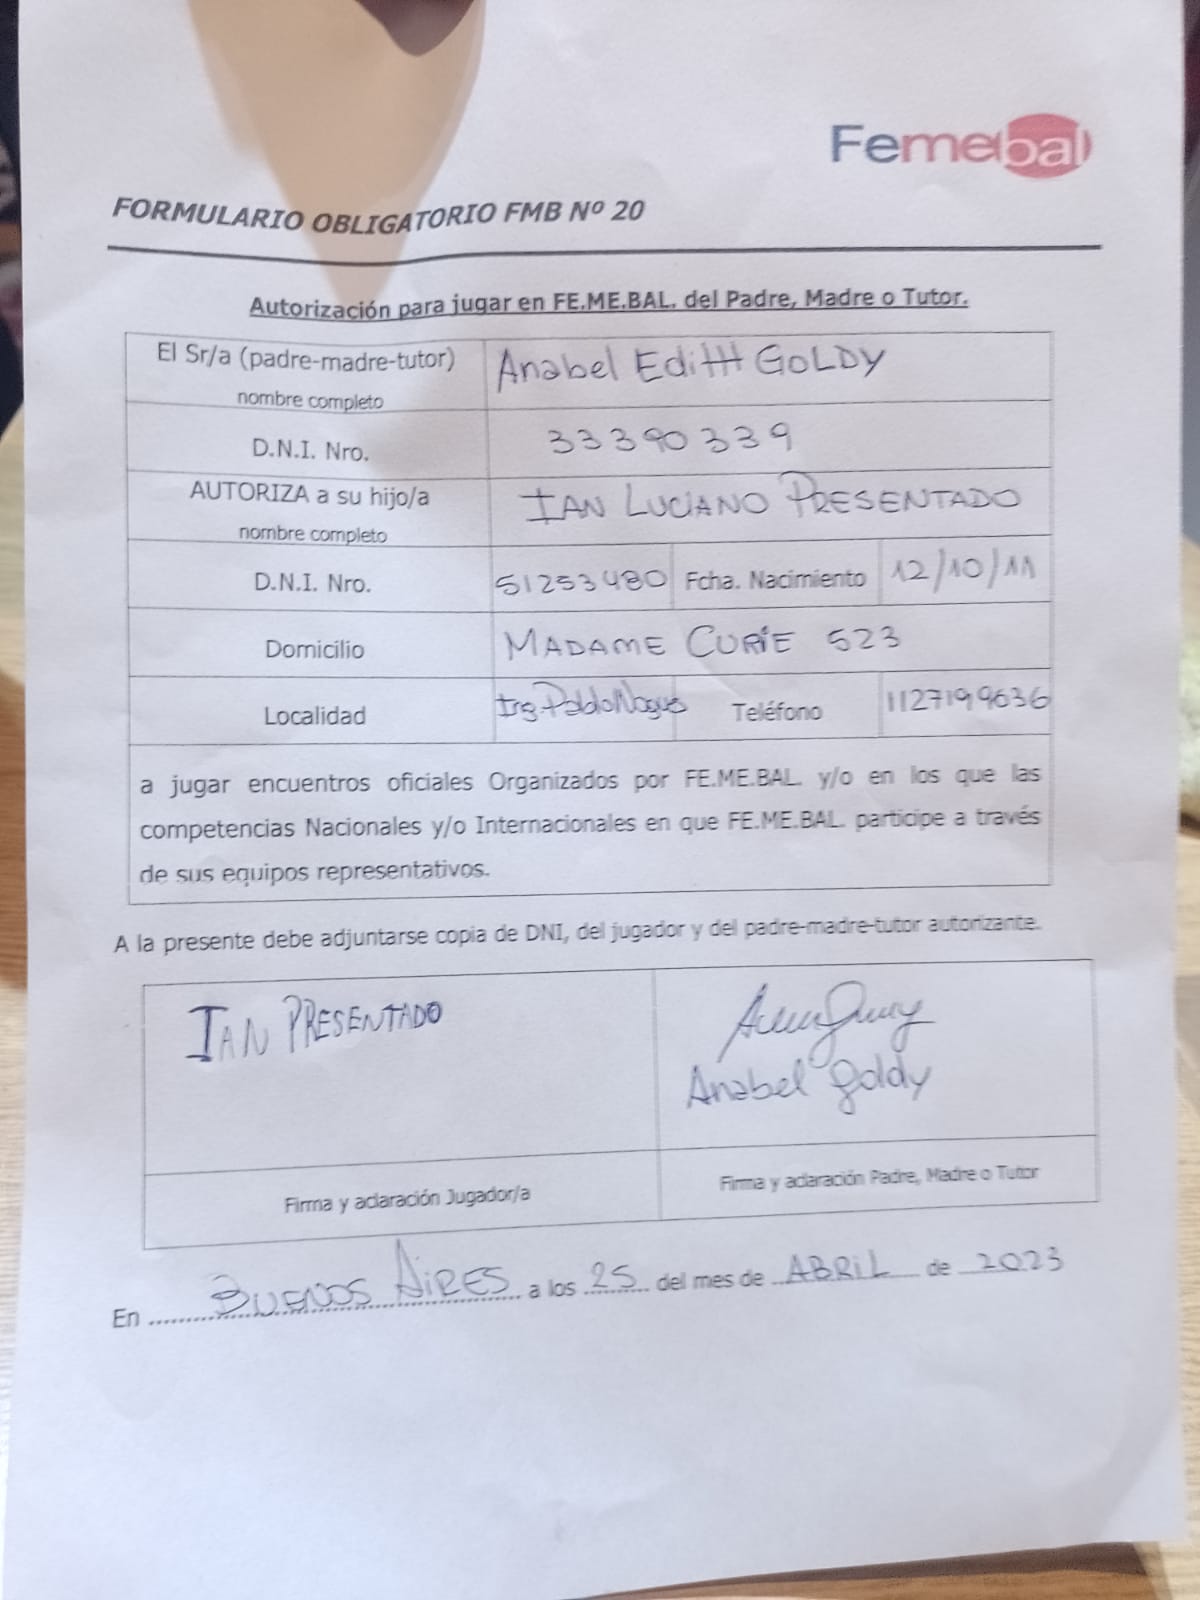 Femebal
FORMULARIO OBLIGATORIO FMB Nº 20
Autorización para jugar en FE.ME.BAL. del Padre, Madre o Tutor.
El Sr/a (padre-madre-tutor) Anabel Edith GOLDY
nombre completo
D.N.I. Nro. 33390339
AUTORIZA a su hijo/a IAN LUCIANO PRESENTADO
nombre completo
D.N.I. Nro. 51253480 Fcha. Nacimiento 12/10/11
Domicilio MADAME CURIE 523
Localidad Ing. Pablo Nogues Teléfono 1127199636
a jugar encuentros oficiales Organizados por FE.ME.BAL. y/o en los que las
competencias Nacionales y/o Internacionales en que FE.ME.BAL. participe a través
de sus equipos representativos.
A la presente debe adjuntarse copia de DNI, del jugador y del padre-madre-tutor autorizante.
IAN PRESENTADO
Anabel Goldy
Firma y aclaración Jugador/a
Firma y aclaración Padre, Madre o Tutor
En BUENOS AIRES a los 25 del mes de ABRIL de 2023